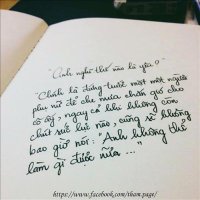 "Anh nghĩ thế nào là yêu?"
"Chính là đứng trước mặt một người
phụ nữ để che mưa chắn gió cho
cô ấy, ngay cả khi không còn
chút sức lực nào, cũng sẽ không
bao giờ nói: "Anh không thể
làm gì được nữa..."
https://www.facebook.com/tham.page/